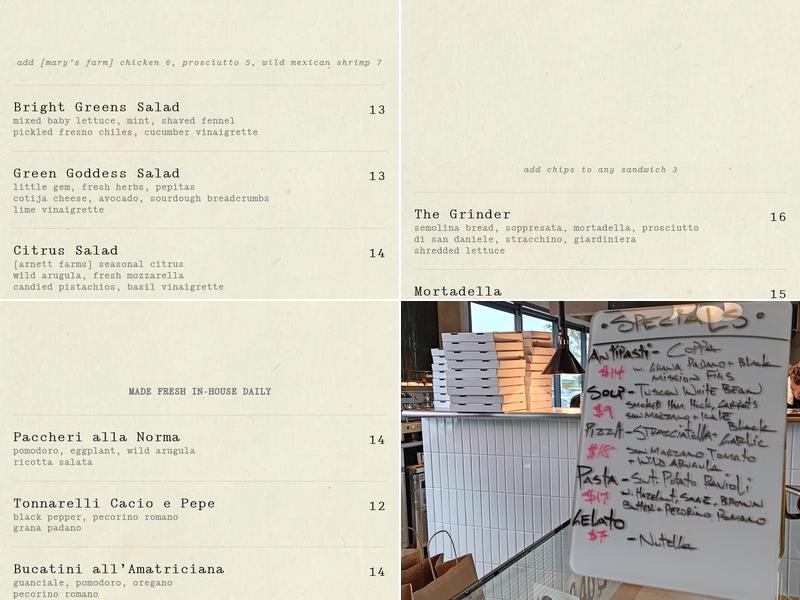 add [mary's farm] chicken 6, prosciutto 5, wild mexican shrimp 7
Bright Greens Salad 13
mixed baby lettuce, mint, shaved fennel
pickled fresno chiles, cucumber vinaigrette
Green Goddess Salad 13
little gem, fresh herbs, pepitas
cotija cheese, avocado, sourdough breadcrumbs
lime vinaigrette
Citrus Salad 14
[arnett farms] seasonal citrus
wild arugula, fresh mozzarella
candied pistachios, basil vinaigrette
add chips to any sandwich 3
The Grinder 16
semolina bread, soppresata, mortadella, prosciutto
di san daniele, stracchino, giardiniera
shredded lettuce
Mortadella 15
MADE FRESH IN-HOUSE DAILY
Paccheri alla Norma 14
pomodoro, eggplant, wild arugula
ricotta salata
Tonnarelli Cacio e Pepe 12
black pepper, pecorino romano
grana padano
Bucatini all'Amatriciana 14
guanciale, pomodoro, oregano
pecorino romano
• SPECIALS •
Antipasti - Coppa
$14 w. Grana Padano + Black
Mission Figs
Soup - Tuscan White Bean
$9 Smoked Ham Hock, Carrots
San Marzano + Kale
Pizza - Stracciatella + Black Garlic
$18 San Marzano Tomato
+ Wild Arugula
Pasta - Swt. Potato Ravioli
$17 w. Hazelnut, Sage, Brown
Butter + Pecorino Romano
Gelato
$7 - Nutella